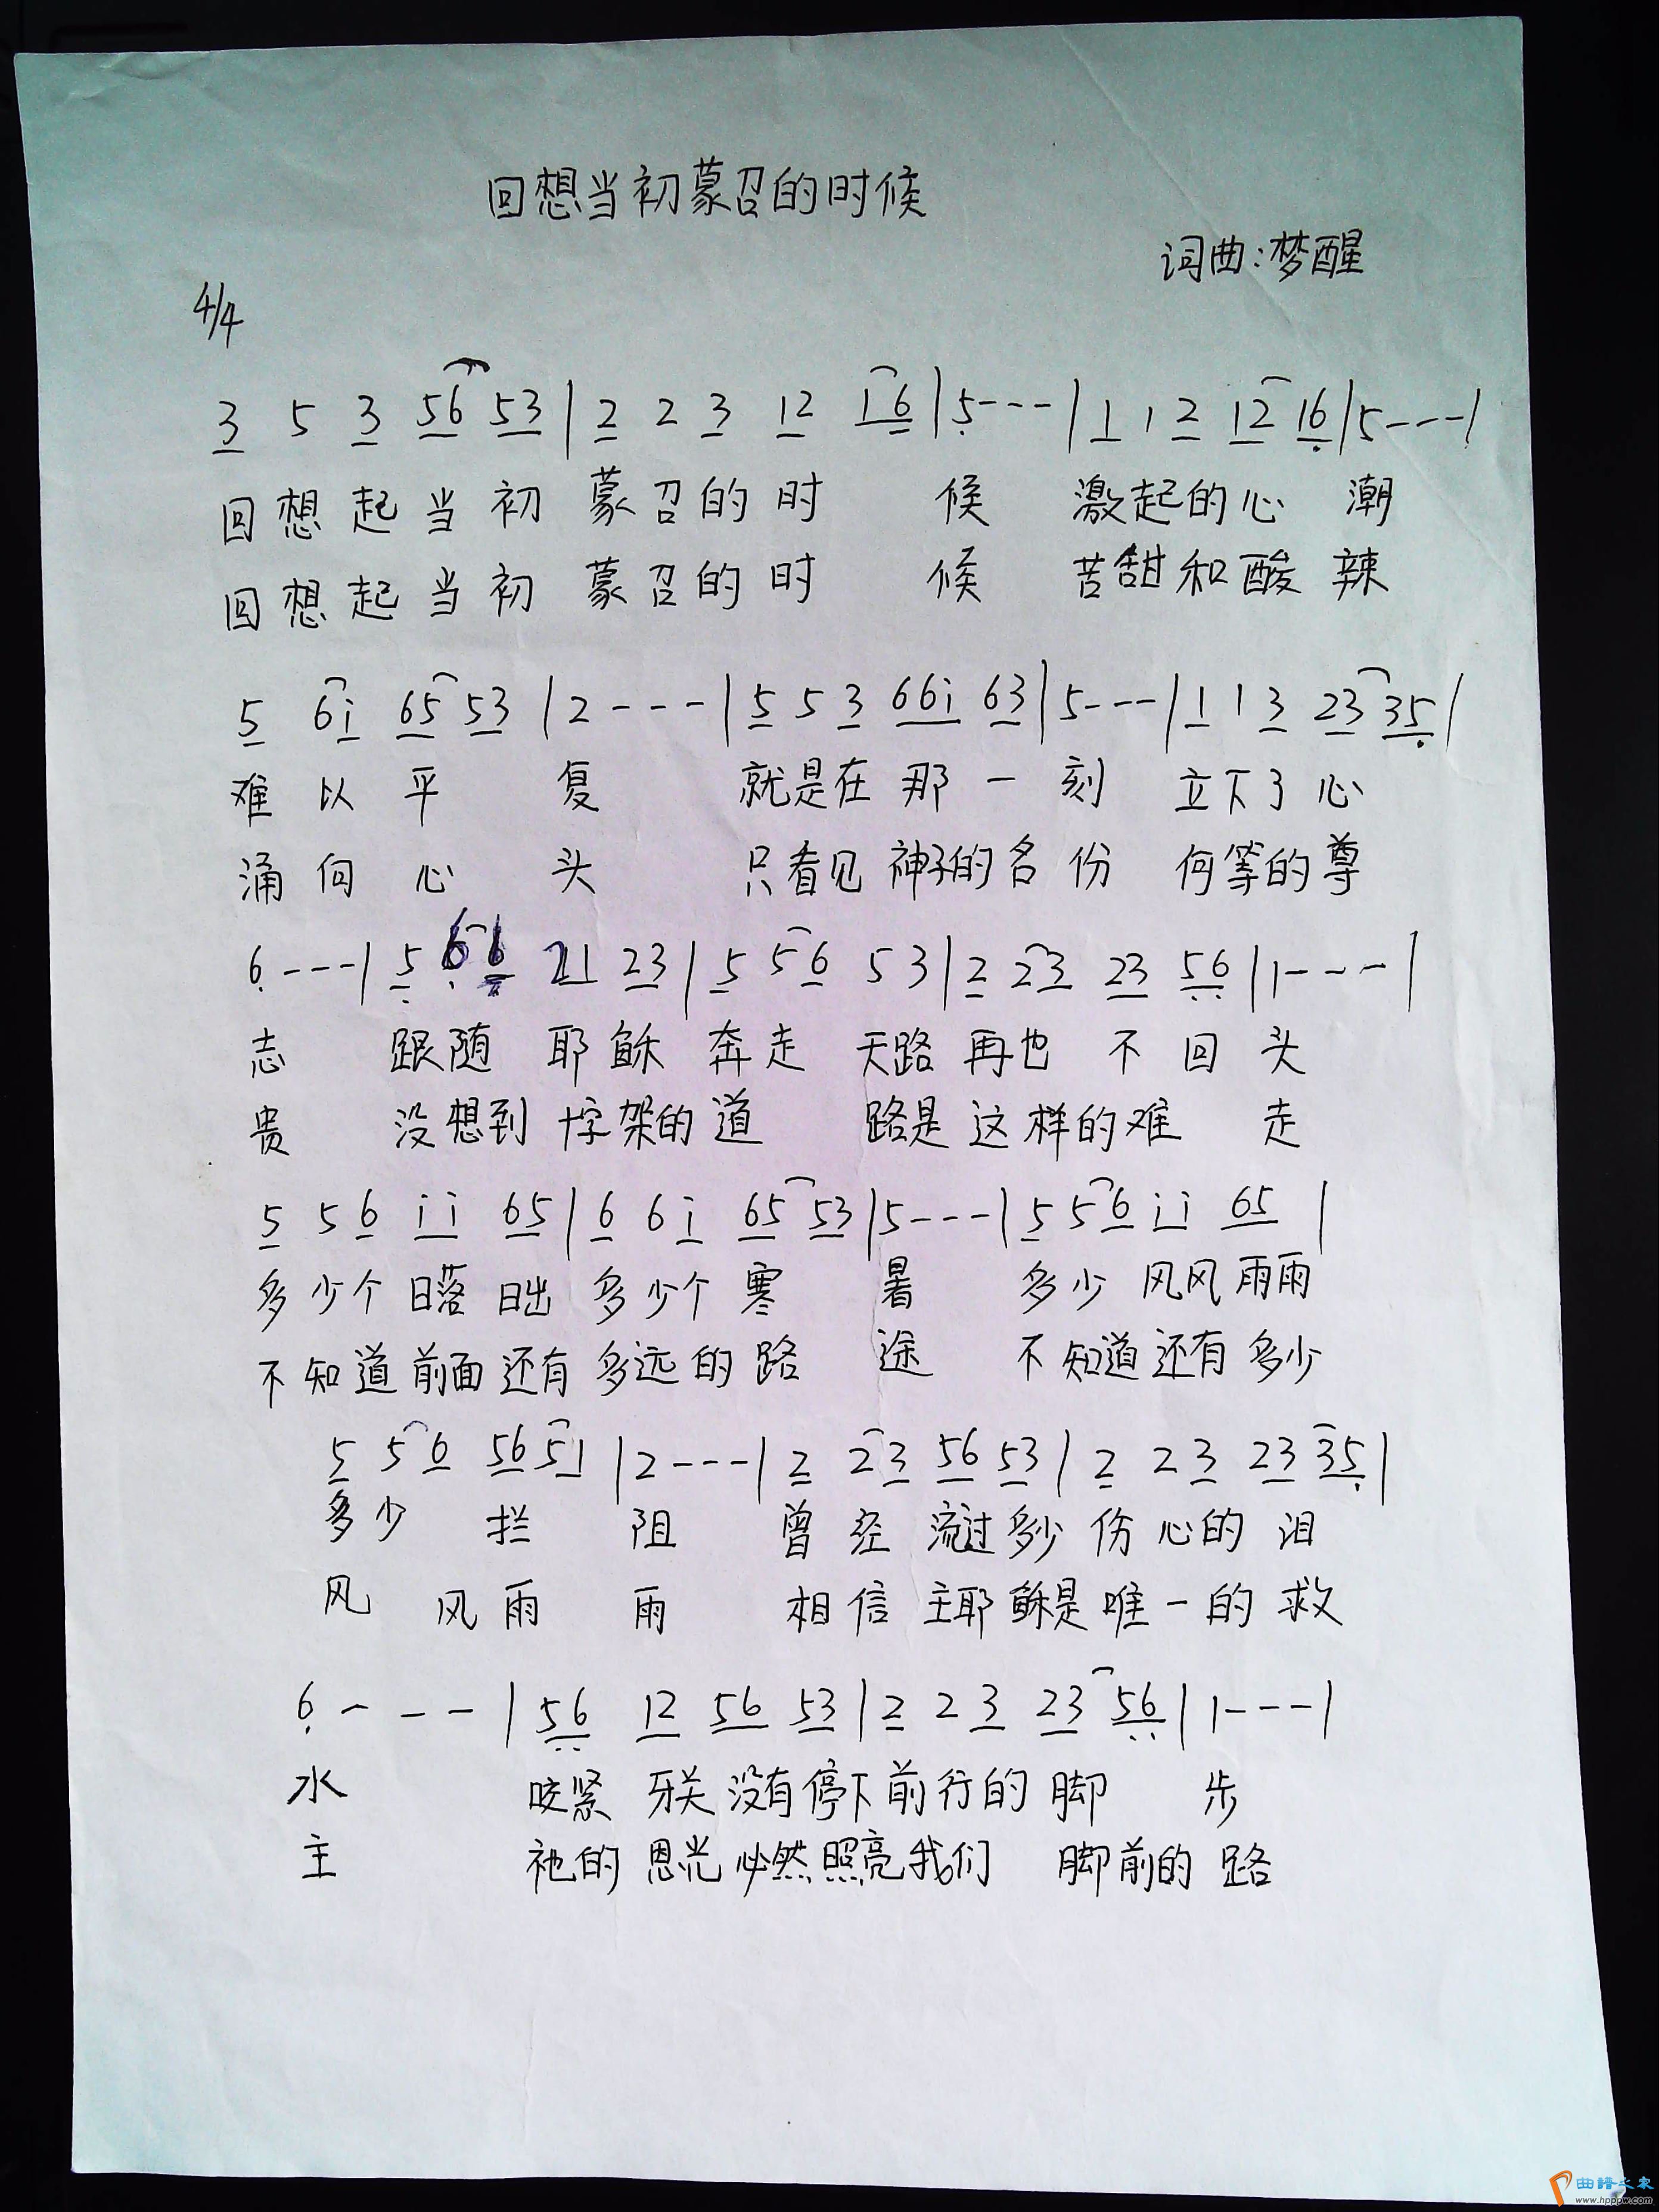 回想当初蒙召的时候
词曲:梦醒
4/4
3 5 3 56 53 | 2 2 3 12 16 | 5--- | 1 1 2 12 16 | 5---|
回想起当初 蒙召的时 候 激起的心 潮
回想起当初 蒙召的时 候 苦甜和酸 辣
5 6i 65 53 | 2 --- | 5 5 3 66i 63 | 5--- | 1 1 3 23 35 |
难以平 复 就是在那一刻 立下了心
涌向心 头 只看见神子的名份 何等的尊
6 --- | 5 66 21 23 | 5 56 53 | 2 23 23 56 | 1---|
志 跟随 耶稣 奔走 天路 再也 不回头
贵 没想到 十字架的道 路是这样的难 走
5 5 6 ii 65 | 6 6 i 65 53 | 5--- | 5 56 ii 65 |
多少个日落日出 多少个寒 暑 多少 风风雨雨
不知道前面还有 多远的路 途 不知道还有多少
5 56 56 51 | 2--- | 2 23 56 53 | 2 2 3 23 35 |
多少 拦 阻 曾经 流过多少 伤心的 泪
风 风雨 雨 相信 主耶稣是唯一的救
6 - - - | 56 12 56 53 | 2 2 3 23 56 | 1---|
水 咬紧 牙关没有停下前行的脚 步
主 祂的 恩光必然照亮我们 脚前的路
曲谱之家
www.hpppw.com